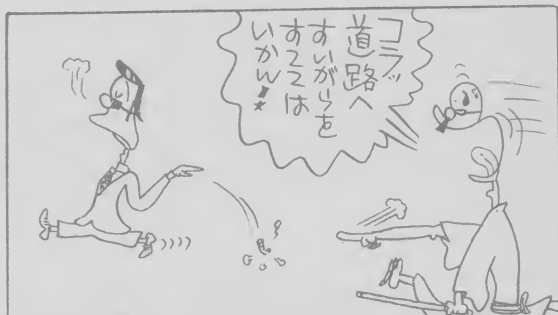 コラッ
道路へ
すいがらを
すてては
いかん!